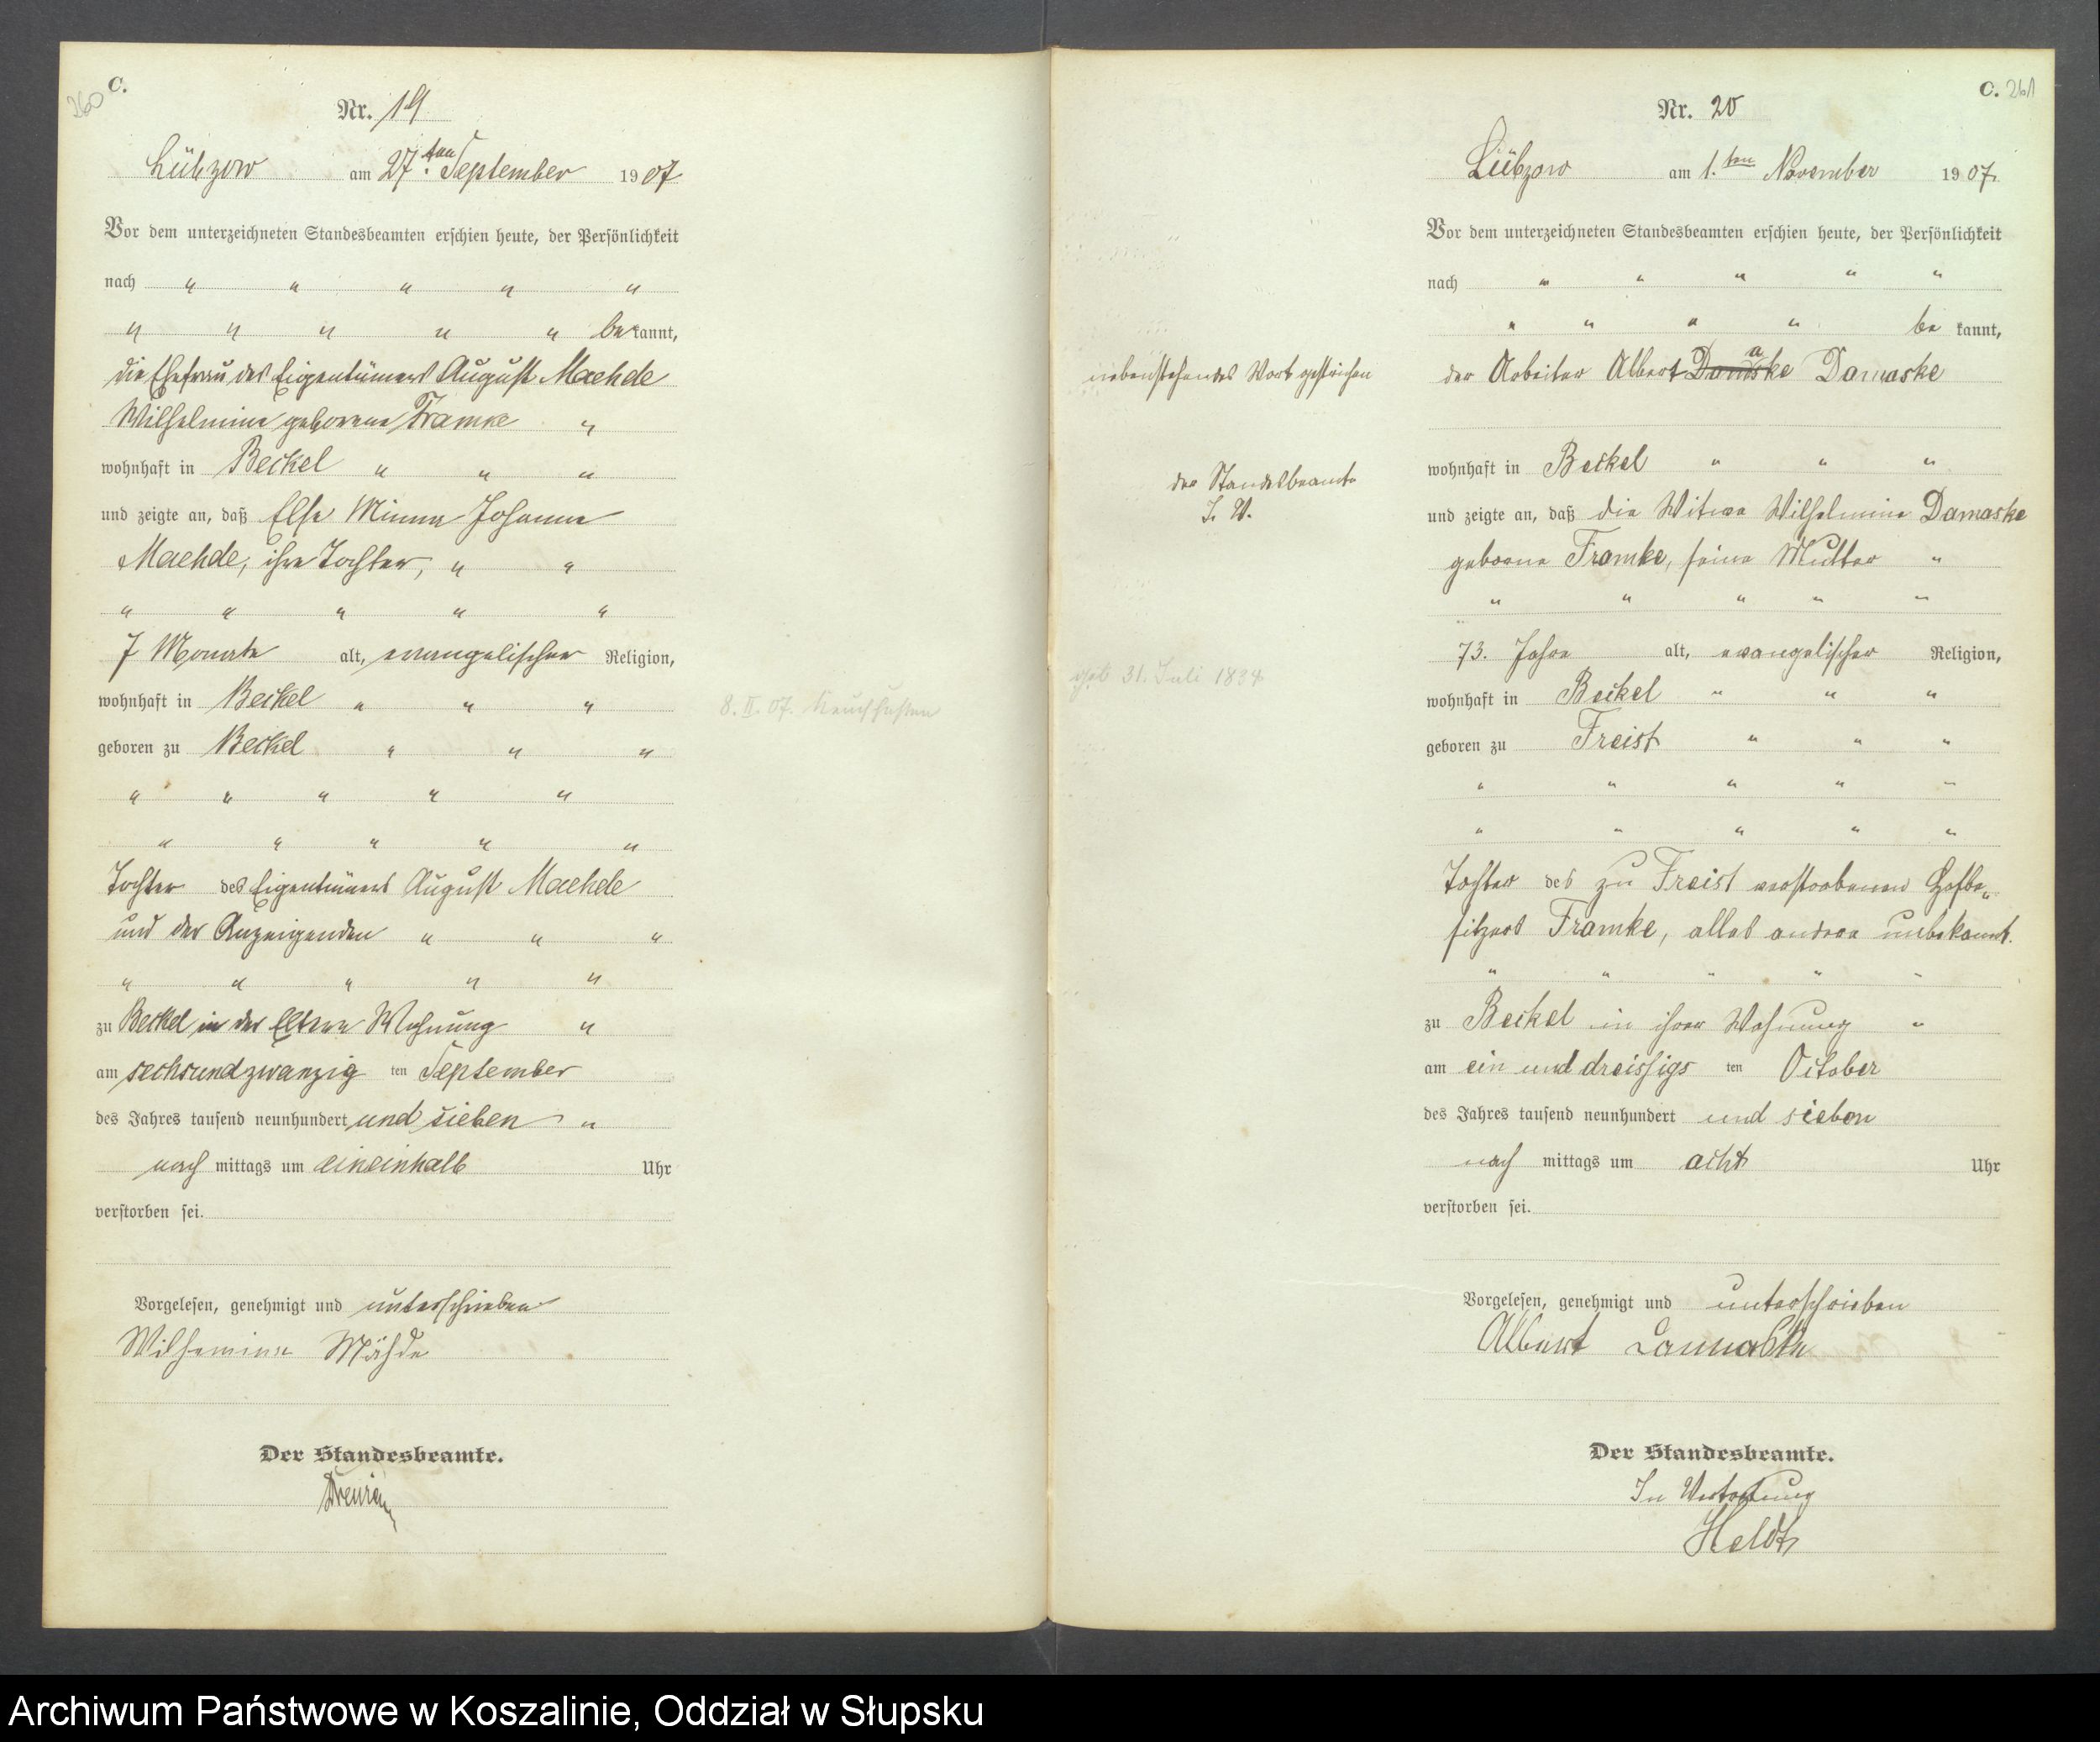 260
C.
Nr. 19
Lübzow am 27. ten September 1907
Vor dem unterzeichneten Standesbeamten erschien heute, der Persönlichkeit
nach " " " " "
" " " " " bekannt,
die Ehefrau des Eigentümers August Maehde
Wilhelmine geborene Framke "
wohnhaft in Beckel " " "
und zeigte an, daß Else Minna Johanne
Maehde, ihre Tochter, " "
" " " " "
7 Monate alt, evangelischer Religion,
wohnhaft in Beckel " " "
8. II. 07. Keuchhusten
geboren zu Beckel " " "
" " " " "
" " " " "
Tochter des Eigentümers August Maehde
und der Anzeigenden " " "
" " " " "
zu Beckel in der Eltern Wohnung "
am sechsundzwanzig ten September
des Jahres tausend neunhundert und sieben "
nach mittags um eineinhalb Uhr
verstorben sei.
Vorgelesen, genehmigt und unterschrieben
Wilhemine Mähde
Der Standesbeamte.
C. 261
Nr. 20
Lübzow am 1. ten November 1907.
Vor dem unterzeichneten Standesbeamten erschien heute, der Persönlichkeit
nach " " " " "
" " " " be kannt,
nebenstehendes Wort gestrichen
der Arbeiter Albert Damaske Damaske
der Standesbeamte
I. V.
wohnhaft in Beckel " " "
und zeigte an, daß die Witwe Wilhelmine Damaske
geborne Framke, seine Mutter "
" " " " "
73. Jahre alt, evangelischer Religion,
geb 31. Juli 1834
wohnhaft in Beckel " " "
geboren zu Freist " " "
" " " " "
" " " " "
Tochter des zu Freist verstorbenen Hofbe„
sitzers Framke, alles andere unbekannt.
" " " " "
zu Beckel in ihrer Wohnung "
am ein und dreissigs ten October
des Jahres tausend neunhundert und sieben
nach mittags um acht Uhr
verstorben sei.
Vorgelesen, genehmigt und unterschrieben
Albert Damaske
Der Standesbeamte.
In Vertretung
Heldt
Archiwum Państwowe w Koszalinie, Oddział w Słupsku